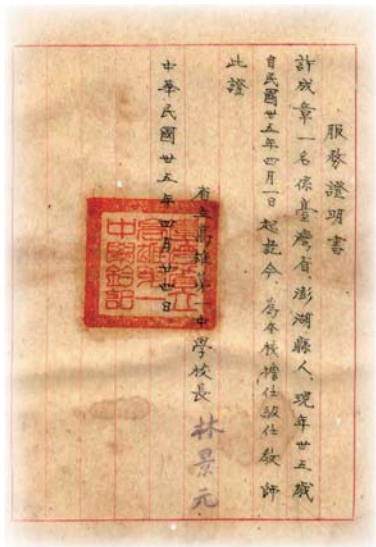 服務證明書
許成章一名係臺灣省、澎湖縣人、現年廿五歲
自民國廿五年四月一日起迄今、為本校擔任級任教師
此證
省立高雄第一中學校長 林景元
中華民國廿五年四月廿四日
臺灣省立
高雄第一
中學鈐記